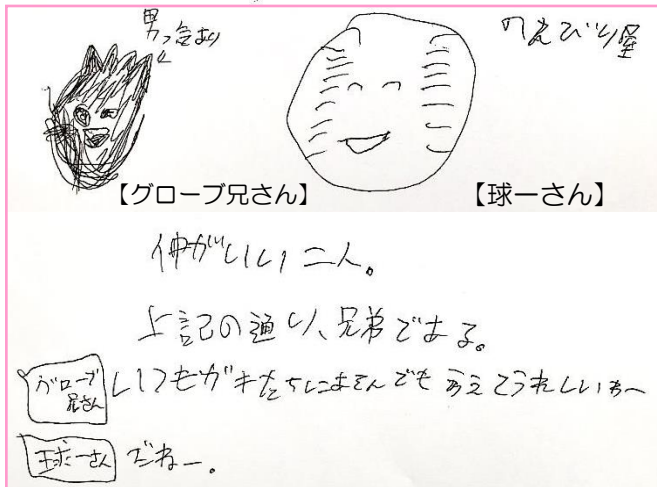 男っ気あり
のんびり屋
【グローブ兄さん】
【球一さん】
仲がいい二人。
上記の通り、兄弟である。
グローブ兄さん いつもガキたちにあそんでもらえてうれしいねー
球一さん だねー。